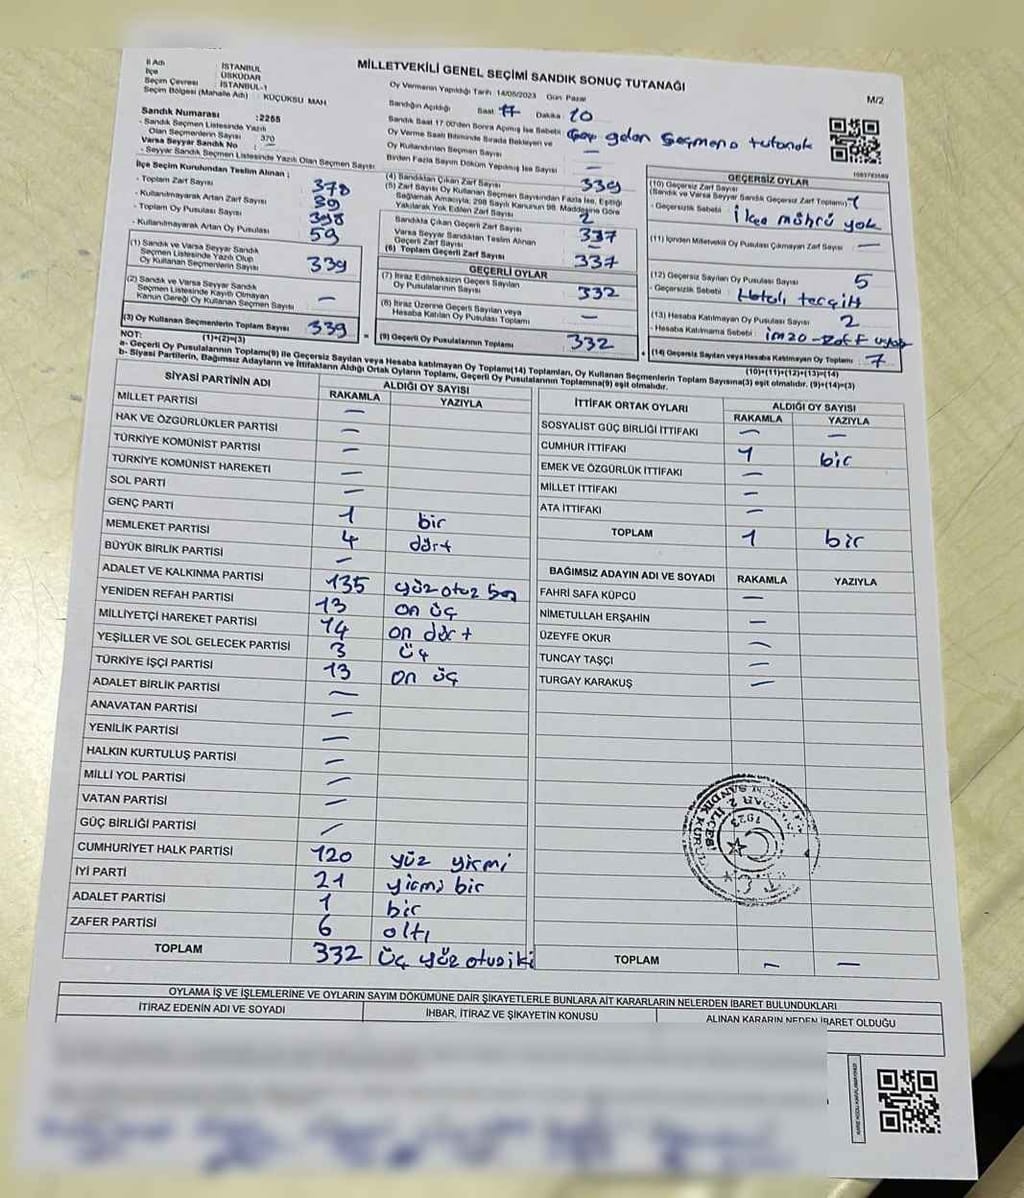 MİLLETVEKİLİ GENEL SEÇİMİ SANDIK SONUÇ TUTANAĞI
M/2
İl Adı : İSTANBUL
İlçe : ÜSKÜDAR
Seçim Çevresi : İSTANBUL-1
Seçim Bölgesi (Mahalle Adı) : KÜÇÜKSU MAH
Sandık Numarası : 2265
- Sandık Seçmen Listesinde Yazılı Olan Seçmenlerin Sayısı : 370
Varsa Seyyar Sandık No : —
- Seyyar Sandık Seçmen Listesinde Yazılı Olan Seçmen Sayısı :
Oy Vermenin Yapıldığı Tarih: 14/05/2023 Gün: Pazar
Sandığın Açıldığı Saat 17 Dakika 10
Sandık Saat 17.00'den Sonra Açılmış İse Sebebi: Geç gelen seçmene tutanak
Oy Verme Saati Bitiminde Sırada Bekleyen ve Oy Kullandırılan Seçmen Sayısı —
Birden Fazla Sayım Döküm Yapılmış İse Sayısı —
İlçe Seçim Kurulundan Teslim Alınan ;
- Toplam Zarf Sayısı : 378
- Kullanılmayarak Artan Zarf Sayısı : 39
- Toplam Oy Pusulası Sayısı : 398
- Kullanılmayarak Artan Oy Pusulası : 59
(1) Sandık ve Varsa Seyyar Sandık Seçmen Listesinde Yazılı Olup Oy Kullanan Seçmenlerin Sayısı : 339
(2) Sandık ve Varsa Seyyar Sandık Seçmen Listesinde Kayıtlı Olmayan Kanun Gereği Oy Kullanan Seçmen Sayısı : —
(3) Oy Kullanan Seçmenlerin Toplam Sayısı : 339
(1)+(2)=(3)
(4) Sandıktan Çıkan Zarf Sayısı : 339
(5) Zarf Sayısı Oy Kullanan Seçmen Sayısından Fazla İse, Eşitliği Sağlamak Amacıyla; 298 Sayılı Kanunun 98. Maddesine Göre Yakılarak Yok Edilen Zarf Sayısı : 2
Sandıkta Çıkan Geçerli Zarf Sayısı : 337
Varsa Seyyar Sandıktan Teslim Alınan Geçerli Zarf Sayısı : —
(6) Toplam Geçerli Zarf Sayısı : 337
GEÇERLİ OYLAR
(7) İtiraz Edilmeksizin Geçerli Sayılan Oy Pusulalarının Sayısı : 332
(8) İtiraz Üzerine Geçerli Sayılan veya Hesaba Katılan Oy Pusulası Toplamı : —
(9) Geçerli Oy Pusulalarının Toplamı : 332
1083783589
GEÇERSİZ OYLAR
(10) Geçersiz Zarf Sayısı (Sandık ve Varsa Seyyar Sandık Geçersiz Zarf Toplamı)
- Geçersizlik Sebebi : İlçe mührü yok
(11) İçinden Milletvekili Oy Pusulası Çıkmayan Zarf Sayısı : —
(12) Geçersiz Sayılan Oy Pusulası Sayısı : 5
- Geçersizlik Sebebi : Hatalı tercih
(13) Hesaba Katılmayan Oy Pusulası Sayısı : 2
- Hesaba Katılmama Sebebi :
(14) Geçersiz Sayılan veya Hesaba Katılmayan Oy Toplamı : 7
(10)+(11)+(12)+(13)=(14)
NOT:
a- Geçerli Oy Pusulalarının Toplamı(9) ile Geçersiz Sayılan veya Hesaba katılmayan Oy Toplamı(14) Toplamları, Oy Kullanan Seçmenlerin Toplam Sayısına(3) eşit olmalıdır. (9)+(14)=(3)
b- Siyasi Partilerin, Bağımsız Adayların ve İttifakların Aldığı Ortak Oyların Toplamı, Geçerli Oy Pusulalarının Toplamına(9) eşit olmalıdır.
SİYASİ PARTİNİN ADI ALDIĞI OY SAYISI
RAKAMLA YAZIYLA
MİLLET PARTİSİ —
HAK VE ÖZGÜRLÜKLER PARTİSİ —
TÜRKİYE KOMÜNİST PARTİSİ —
TÜRKİYE KOMÜNİST HAREKETİ —
SOL PARTİ —
GENÇ PARTİ 1 bir
MEMLEKET PARTİSİ 4 dört
BÜYÜK BİRLİK PARTİSİ —
ADALET VE KALKINMA PARTİSİ 135 yüz otuz beş
YENİDEN REFAH PARTİSİ 13 on üç
MİLLİYETÇİ HAREKET PARTİSİ 14 on dört
YEŞİLLER VE SOL GELECEK PARTİSİ 3 üç
TÜRKİYE İŞÇİ PARTİSİ 13 on üç
ADALET BİRLİK PARTİSİ —
ANAVATAN PARTİSİ —
YENİLİK PARTİSİ —
HALKIN KURTULUŞ PARTİSİ —
MİLLİ YOL PARTİSİ —
VATAN PARTİSİ —
GÜÇ BİRLİĞİ PARTİSİ —
CUMHURİYET HALK PARTİSİ 120 yüz yirmi
İYİ PARTİ 21 yirmi bir
ADALET PARTİSİ 1 bir
ZAFER PARTİSİ 6 altı
TOPLAM 332 üç yüz otuziki
İTTİFAK ORTAK OYLARI ALDIĞI OY SAYISI
RAKAMLA YAZIYLA
SOSYALIST GÜÇ BİRLİĞİ İTTİFAKI — —
CUMHUR İTTİFAKI 1 bir
EMEK VE ÖZGÜRLÜK İTTİFAKI —
MİLLET İTTİFAKI —
ATA İTTİFAKI —
TOPLAM 1 bir
BAĞIMSIZ ADAYIN ADI VE SOYADI RAKAMLA YAZIYLA
FAHRİ SAFA KÜPCÜ —
NİMETULLAH ERŞAHİN —
ÜZEYFE OKUR —
TUNCAY TAŞÇI —
TURGAY KARAKUŞ —
TOPLAM — —
OYLAMA İŞ VE İŞLEMLERİNE VE OYLARIN SAYIM DÖKÜMÜNE DAİR ŞİKAYETLERLE BUNLARA AİT KARARLARIN NELERDEN İBARET BULUNDUKLARI
İTİRAZ EDENİN ADI VE SOYADI
İHBAR, İTİRAZ VE ŞİKAYETİN KONUSU
ALINAN KARARIN NEDEN İBARET OLDUĞU